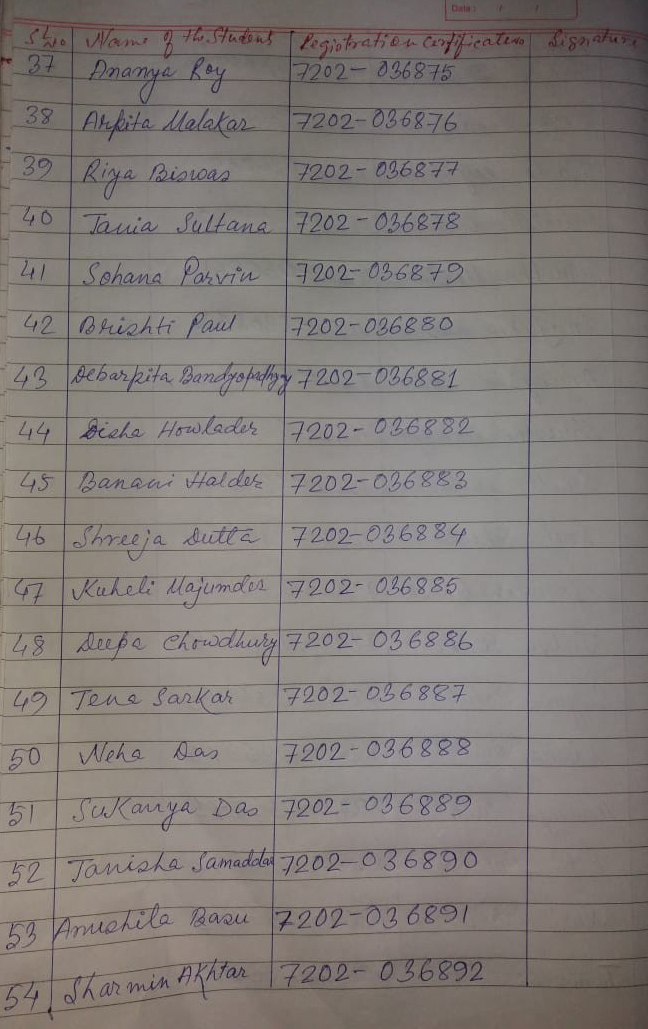 Date: / /
Sl No Name of the Student Registration Certificate no Signature
37 Ananya Roy 7202-036875
38 Arpita Malakar 7202-036876
39 Riya Biswas 7202-036877
40 Tania Sultana 7202-036878
41 Sohana Parvin 7202-036879
42 Brishti Paul 7202-036880
43 Debarpita Bandyopadhyay 7202-036881
44 Disha Howlader 7202-036882
45 Banani Halder 7202-036883
46 Shreeja Dutta 7202-036884
47 Kuheli Majumder 7202-036885
48 Deepa Chowdhury 7202-036886
49 Tena Sarkar 7202-036887
50 Neha Das 7202-036888
51 Sukanya Das 7202-036889
52 Tanisha Samaddar 7202-036890
53 Anushila Basu 7202-036891
54 Sharmin Akhtar 7202-036892